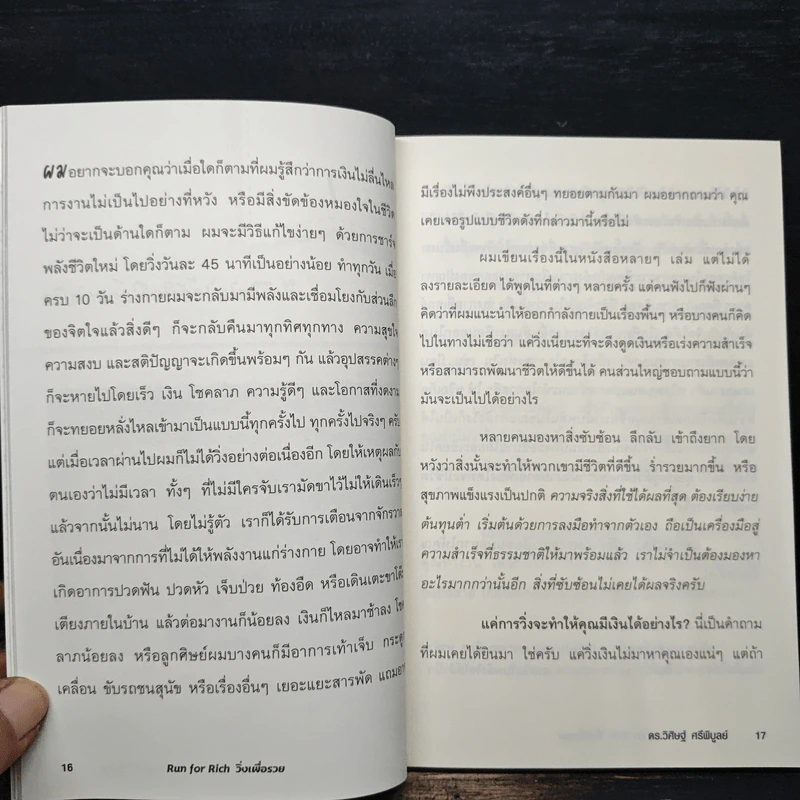 ผมอยากจะบอกคุณว่าเมื่อใดก็ตามที่ผมรู้สึกว่าการเงินไม่ลื่นไหล
การงานไม่เป็นไปอย่างที่หวัง หรือมีสิ่งขัดข้องหมองใจในชีวิต
ไม่ว่าจะเป็นด้านใดก็ตาม ผมจะมีวิธีแก้ไขง่ายๆ ด้วยการชาร์จ
พลังชีวิตใหม่ โดยวิ่งวันละ 45 นาทีเป็นอย่างน้อย ทำทุกวัน เมื่อ
ครบ 10 วัน ร่างกายผมจะกลับมามีพลังและเชื่อมโยงกับส่วนลึก
ของจิตใจแล้วสิ่งดีๆ ก็จะกลับคืนมาทุกทิศทุกทาง ความสุขใจ
ความสงบ และสติปัญญาจะเกิดขึ้นพร้อมๆ กัน แล้วอุปสรรคต่างๆ
ก็จะหายไปโดยเร็ว เงิน โชคลาภ ความรู้ดีๆ และโอกาสที่งดงาม
ก็จะทยอยหลั่งไหลเข้ามาเป็นแบบนี้ทุกครั้งไป ทุกครั้งไปจริงๆ ครับ
แต่เมื่อเวลาผ่านไปผมก็ไม่ได้วิ่งอย่างต่อเนื่องอีก โดยให้เหตุผลกับ
ตนเองว่าไม่มีเวลา ทั้งๆ ที่ไม่มีใครจับเรามัดขาไว้ไม่ให้เดินเร็วๆ
แล้วจากนั้นไม่นาน โดยไม่รู้ตัว เราก็ได้รับการเตือนจากจักรวาล
อันเนื่องมาจากการที่ไม่ได้ให้พลังงานแก่ร่างกาย โดยอาจทำให้เรา
เกิดอาการปวดฟัน ปวดหัว เจ็บป่วย ท้องอืด หรือเดินเตะขาโต๊ะ
เตียงภายในบ้าน แล้วต่อมางานก็น้อยลง เงินก็ไหลมาช้าลง โชค
ลาภน้อยลง หรือลูกศิษย์ผมบางคนก็มีอาการเท้าเจ็บ กระดูก
เคลื่อน ขับรถชนสุนัข หรือเรื่องอื่นๆ เยอะแยะสารพัด แถมอาจ
16 Run for Rich วิ่งเพื่อรวย
มีเรื่องไม่พึงประสงค์อื่นๆ ทยอยตามกันมา ผมอยากถามว่า คุณ
เคยเจอรูปแบบชีวิตดังที่กล่าวมานี้หรือไม่
ผมเขียนเรื่องนี้ในหนังสือหลายๆ เล่ม แต่ไม่ได้
ลงรายละเอียด ได้พูดในที่ต่างๆ หลายครั้ง แต่คนฟังไปก็ฟังผ่านๆ
คิดว่าที่ผมแนะนำให้ออกกำลังกายเป็นเรื่องพื้นๆ หรือบางคนก็คิด
ไปในทางไม่เชื่อว่า แค่วิ่งเนี่ยนะที่จะดึงดูดเงินหรือเร่งความสำเร็จ
หรือสามารถพัฒนาชีวิตให้ดีขึ้นได้ คนส่วนใหญ่ชอบถามแบบนี้ว่า
มันจะเป็นไปได้อย่างไร
หลายคนมองหาสิ่งซับซ้อน ลึกลับ เข้าถึงยาก โดย
หวังว่าสิ่งนั้นจะทำให้พวกเขามีชีวิตที่ดีขึ้น ร่ำรวยมากขึ้น หรือ
สุขภาพแข็งแรงเป็นปกติ ความจริงสิ่งที่ใช้ได้ผลที่สุด ต้องเรียบง่าย
ต้นทุนต่ำ เริ่มต้นด้วยการลงมือทำจากตัวเอง ถือเป็นเครื่องมือสู่
ความสำเร็จที่ธรรมชาติให้มาพร้อมแล้ว เราไม่จำเป็นต้องมองหา
อะไรมากกว่านั้นอีก สิ่งที่ซับซ้อนไม่เคยได้ผลจริงครับ
แค่การวิ่งจะทำให้คุณมีเงินได้อย่างไร? นี่เป็นคำถาม
ที่ผมเคยได้ยินมา ใช่ครับ แค่วิ่งเงินไม่มาหาคุณเองแน่ๆ แต่ถ้า
ดร.วิศิษฐ์ ศรีพิบูลย์ 17